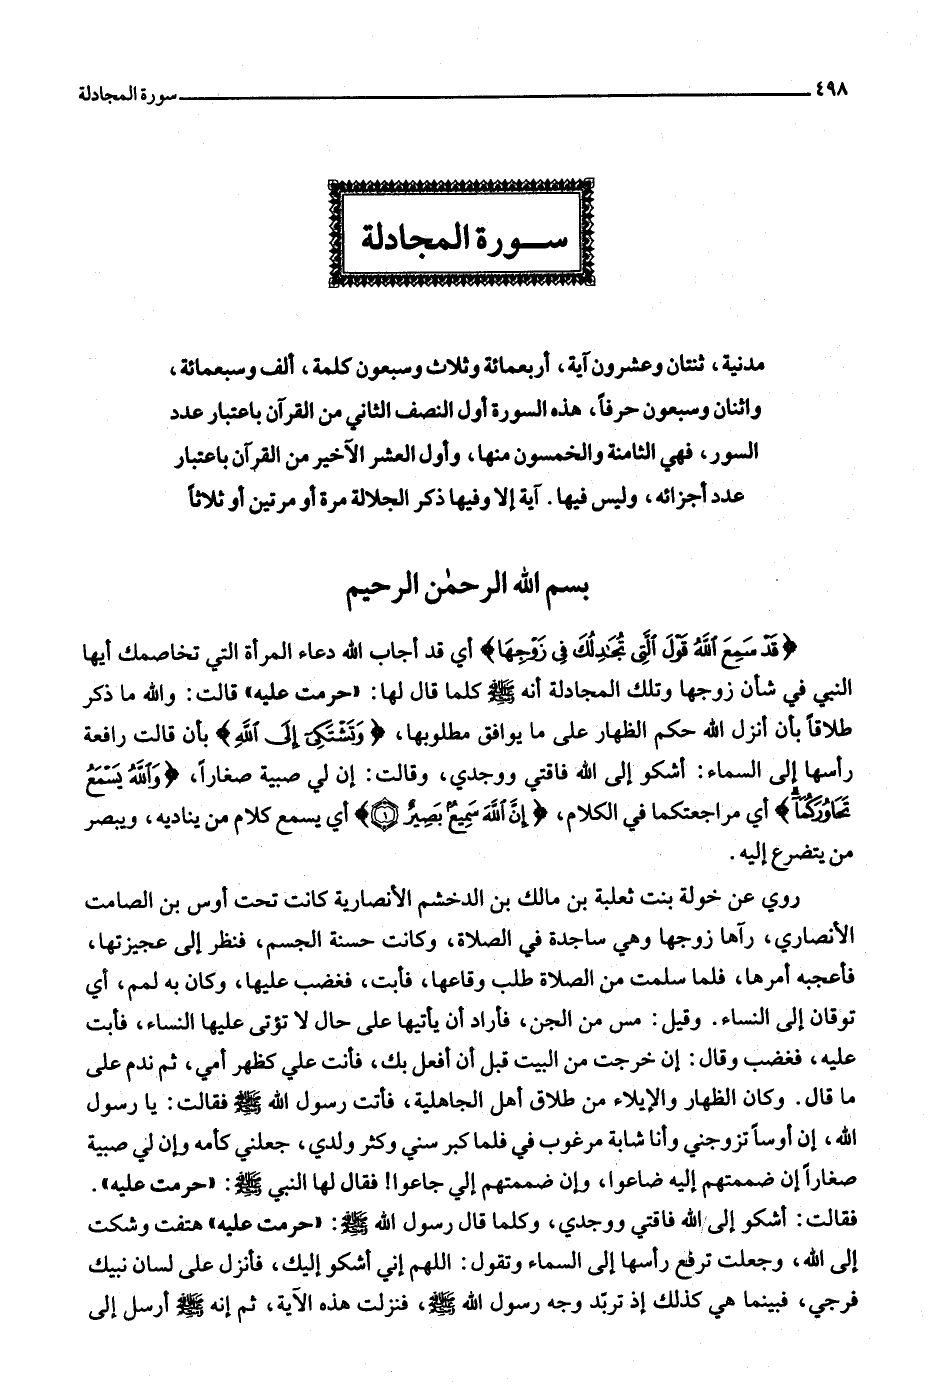 ٤٩٨ سورة المجادلة
سورة المجادلة
مدنية، ثنتان وعشرون آية، أربعمائة وثلاث وسبعون كلمة، ألف وسبعمائة،
واثنان وسبعون حرفاً، هذه السورة أول النصف الثاني من القرآن باعتبار عدد
السور، فهي الثامنة والخمسون منها، وأول العشر الأخير من القرآن باعتبار
عدد أجزائه، وليس فيها. آية إلا وفيها ذكر الجلالة مرة أو مرتين أو ثلاثاً
بسم الله الرحمٰن الرحيم
﴿قَدْ سَمِعَ ٱللَّهُ قَوْلَ ٱلَّتِي تُجَٰدِلُكَ فِي زَوْجِهَا﴾ أي قد أجاب الله دعاء المرأة التي تخاصمك أيها
النبي في شأن زوجها وتلك المجادلة أنه ﷺ كلما قال لها: «حرمت عليه» قالت: والله ما ذكر
طلاقاً بأن أنزل الله حكم الظهار على ما يوافق مطلوبها، ﴿وَتَشْتَكِيٓ إِلَى ٱللَّهِ﴾ بأن قالت رافعة
رأسها إلى السماء: أشكو إلى الله فاقتي ووجدي، وقالت: إن لي صبية صغاراً، ﴿وَٱللَّهُ يَسْمَعُ
تَحَاوُرَكُمَآ﴾ أي مراجعتكما في الكلام، ﴿إِنَّ ٱللَّهَ سَمِيعٌۢ بَصِيرٌ ۝١﴾ أي يسمع كلام من يناديه، ويبصر
من يتضرع إليه.
روي عن خولة بنت ثعلبة بن مالك بن الدخشم الأنصارية كانت تحت أوس بن الصامت
الأنصاري، رآها زوجها وهي ساجدة في الصلاة، وكانت حسنة الجسم، فنظر إلى عجيزتها،
فأعجبه أمرها، فلما سلمت من الصلاة طلب وقاعها، فأبت، فغضب عليها، وكان به لمم، أي
توقان إلى النساء. وقيل: مس من الجن، فأراد أن يأتيها على حال لا تؤتى عليها النساء، فأبت
عليه، فغضب وقال: إن خرجت من البيت قبل أن أفعل بك، فأنت علي كظهر أمي، ثم ندم على
ما قال. وكان الظهار والإيلاء من طلاق أهل الجاهلية، فأتت رسول الله ﷺ فقالت: يا رسول
الله، إن أوساً تزوجني وأنا شابة مرغوب في فلما كبر سني وكثر ولدي، جعلني كأمه وإن لي صبية
صغاراً إن ضممتهم إليه ضاعوا، وإن ضممتهم إلي جاعوا! فقال لها النبي ﷺ: «حرمت عليه».
فقالت: أشكو إلى الله فاقتي ووجدي، وكلما قال رسول الله ﷺ: «حرمت عليه» هتفت وشكت
إلى الله، وجعلت ترفع رأسها إلى السماء وتقول: اللهم إني أشكو إليك، فأنزل على لسان نبيك
فرجي، فبينما هي كذلك إذ تربّد وجه رسول الله ﷺ، فنزلت هذه الآية، ثم إنه ﷺ أرسل إلى